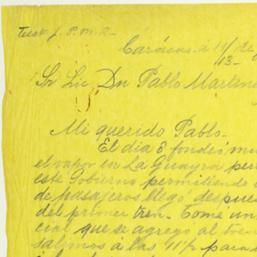 Caracas a 19/ de
13.-
Sr Lic. Dn Pablo Martine
Mi querido Pablo.
El dia 8 fondeó mi
el vapor en La Guayra per
este Gobierno permitiendo
de pasajeros llegó despue
del primer tren. Tomé un
cial que se agregó al tren
salimos á las 11½ para